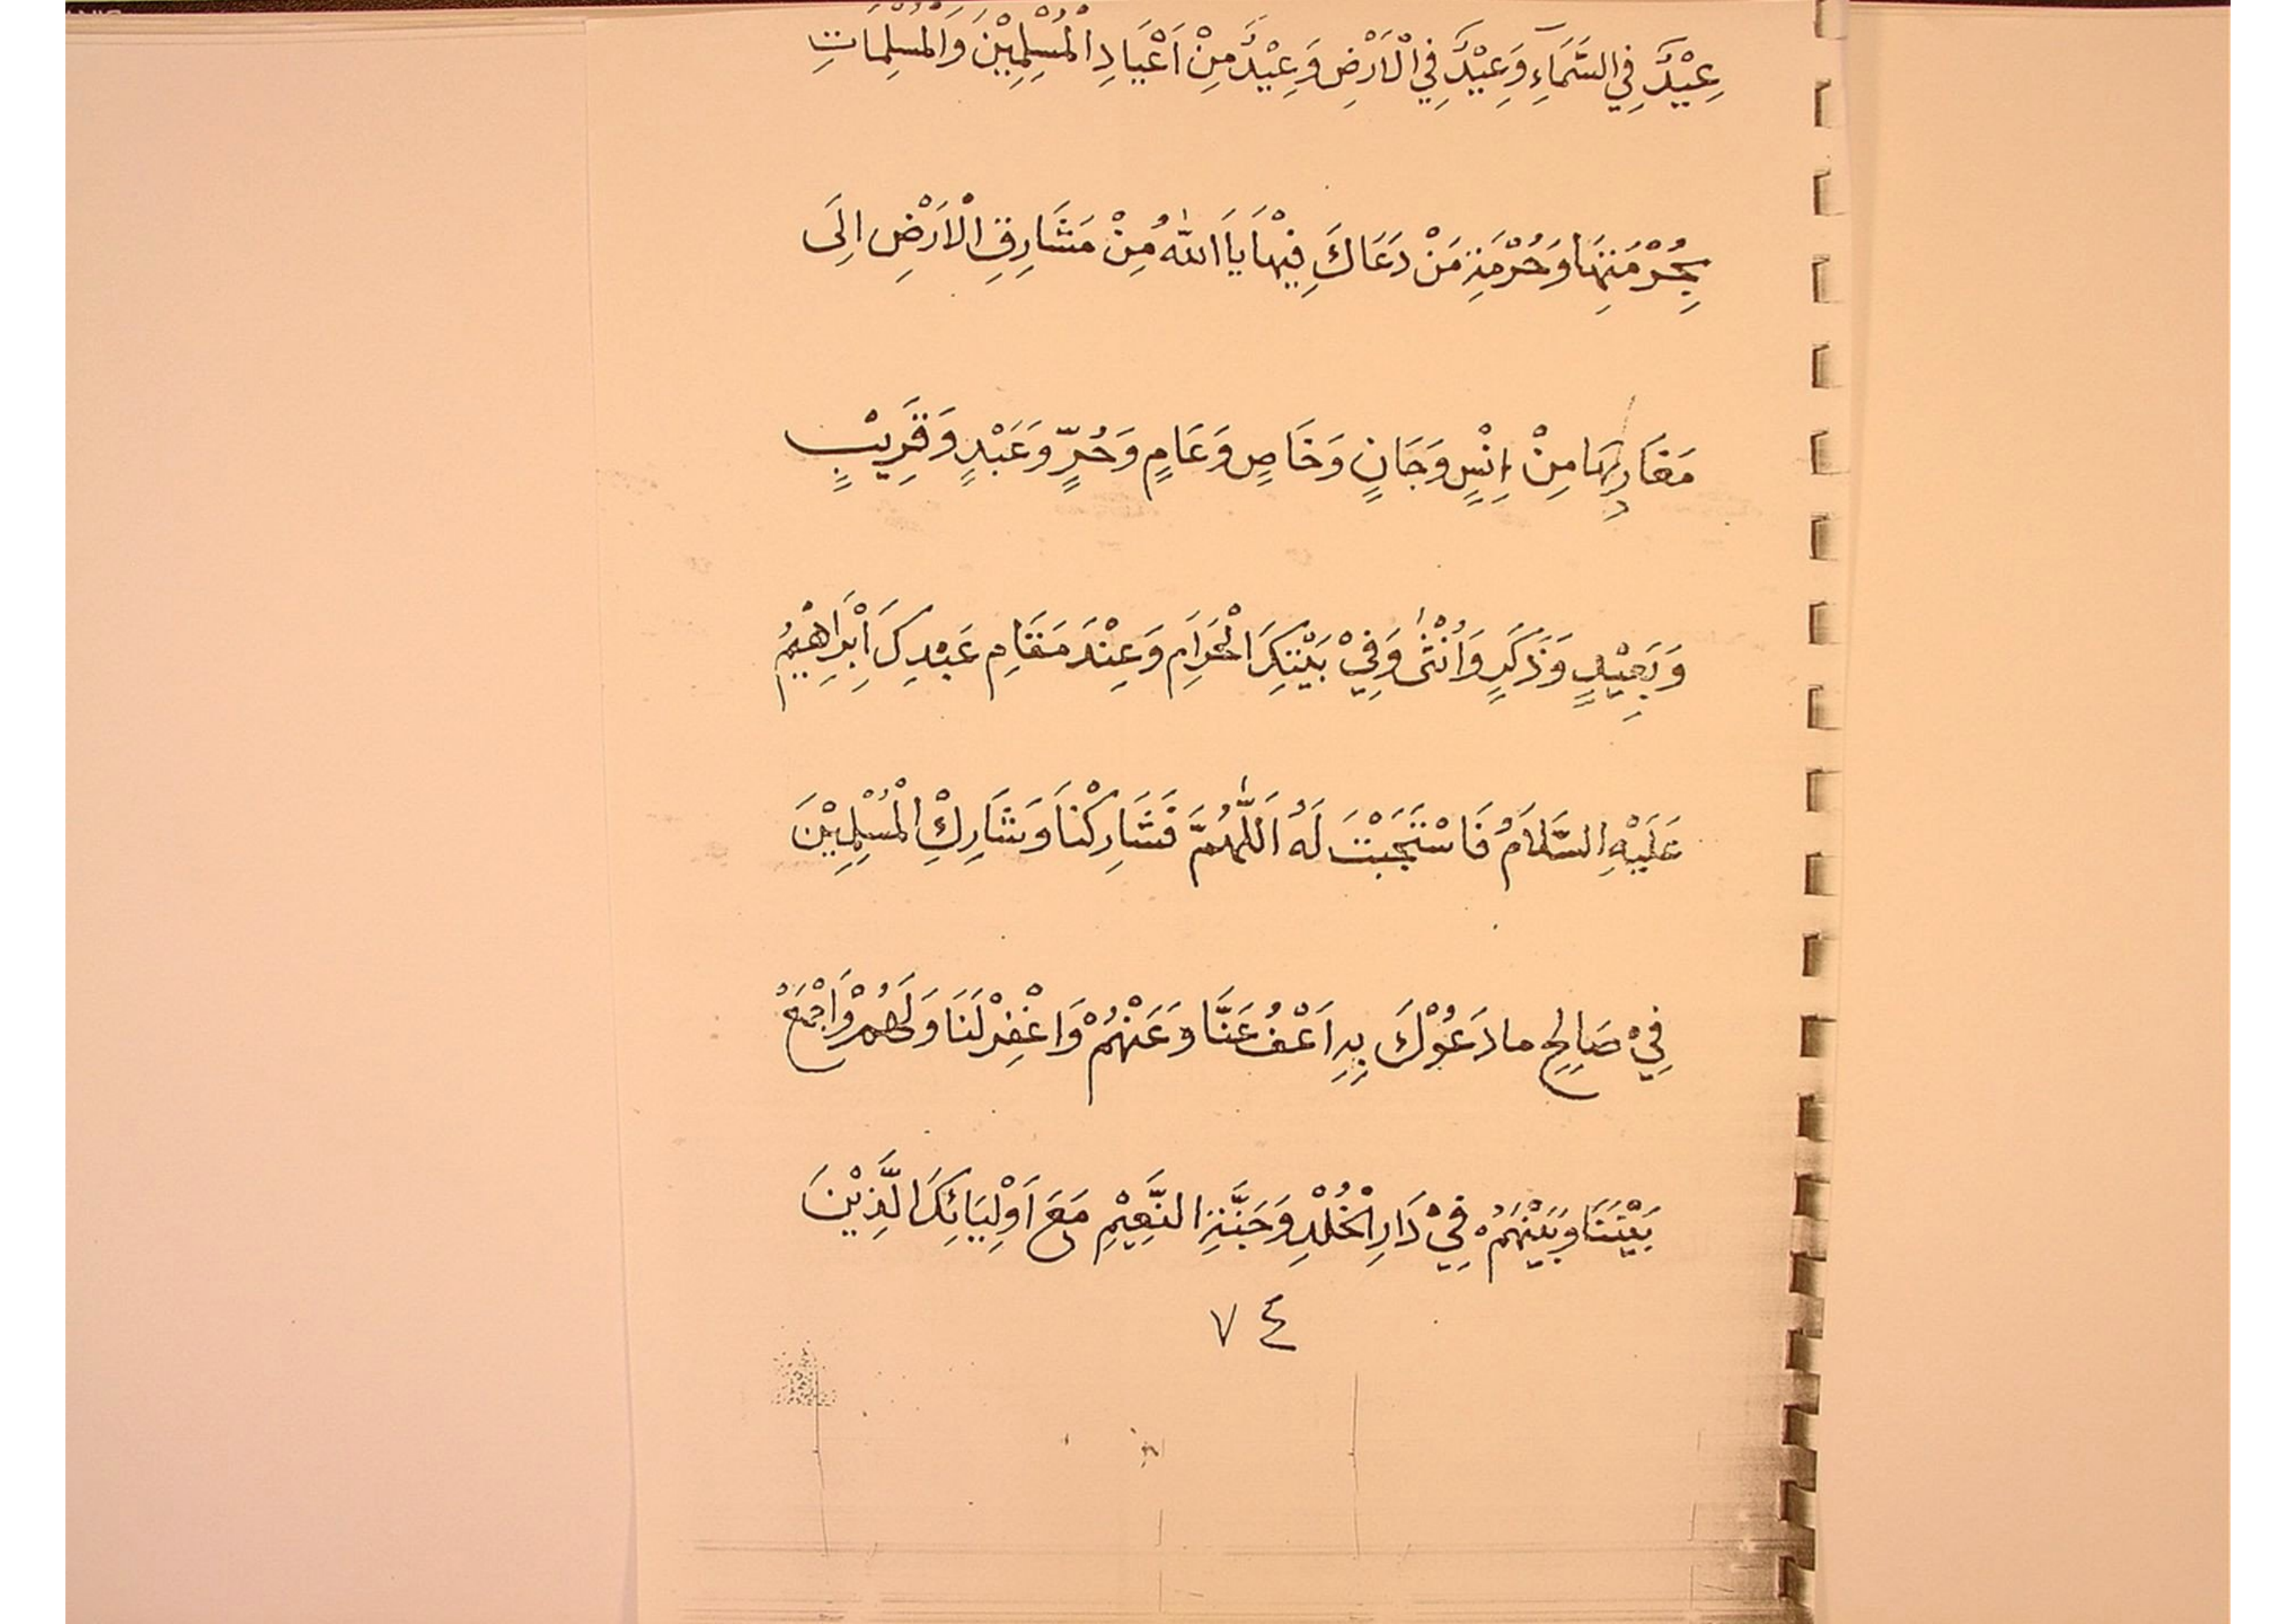 عِيْدٌ فِي السَّمَآءِ وَعِيْدٌ فِي الْاَرْضِ وَعِيْدٌ مِنْ اَعْيَادِ الْمُسْلِمِيْنَ وَالْمُسْلِمَاتِ
بِحُرْمَتِهَا وَحُرْمَةِ مَنْ دَعَاكَ فِيْهَا يَا اَللهُ مِنْ مَشَارِقِ الْاَرْضِ اِلَى
مَغَارِبِهَا مِنْ اِنْسٍ وَجَانٍ وَخَاصٍ وَعَامٍ وَحُرٍّ وَعَبْدٍ وَقَرِيْبٍ
وَبَعِيْدٍ وَذَكَرٍ وَاُنْثٰى وَفِيْ بَيْتِكَ الْحَرَامِ وَعِنْدَ مَقَامِ عَبْدِكَ اِبْرَاهِيْمُ
عَلَيْهِ السَّلَامُ فَاسْتَجَبْتَ لَهُ اَللّٰهُمَّ فَشَارِكْنَا وَشَارِكِ الْمُسْلِمِيْنَ
فِيْ صَالِحِ ما دَعُوْكَ بِهِ اَعْفُ عَنَّا وَعَنْهُمْ وَاغْفِرْلَنَا وَلَهُمْ وَاجْمَعْ
بَيْنَنَا وَبَيْنَهُمْ فِيْ دَارِ الْخُلْدِ وَجَنَّةِ النَّعِيْمِ مَعَ اَوْلِيَائِكَ الَّذِيْنَ
٧٤